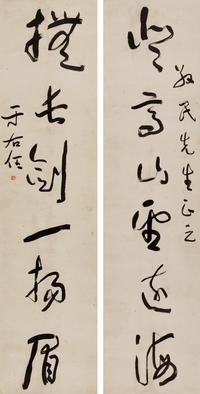 民先生正之
登高山望遠海
撫長劍一揚眉
于右任